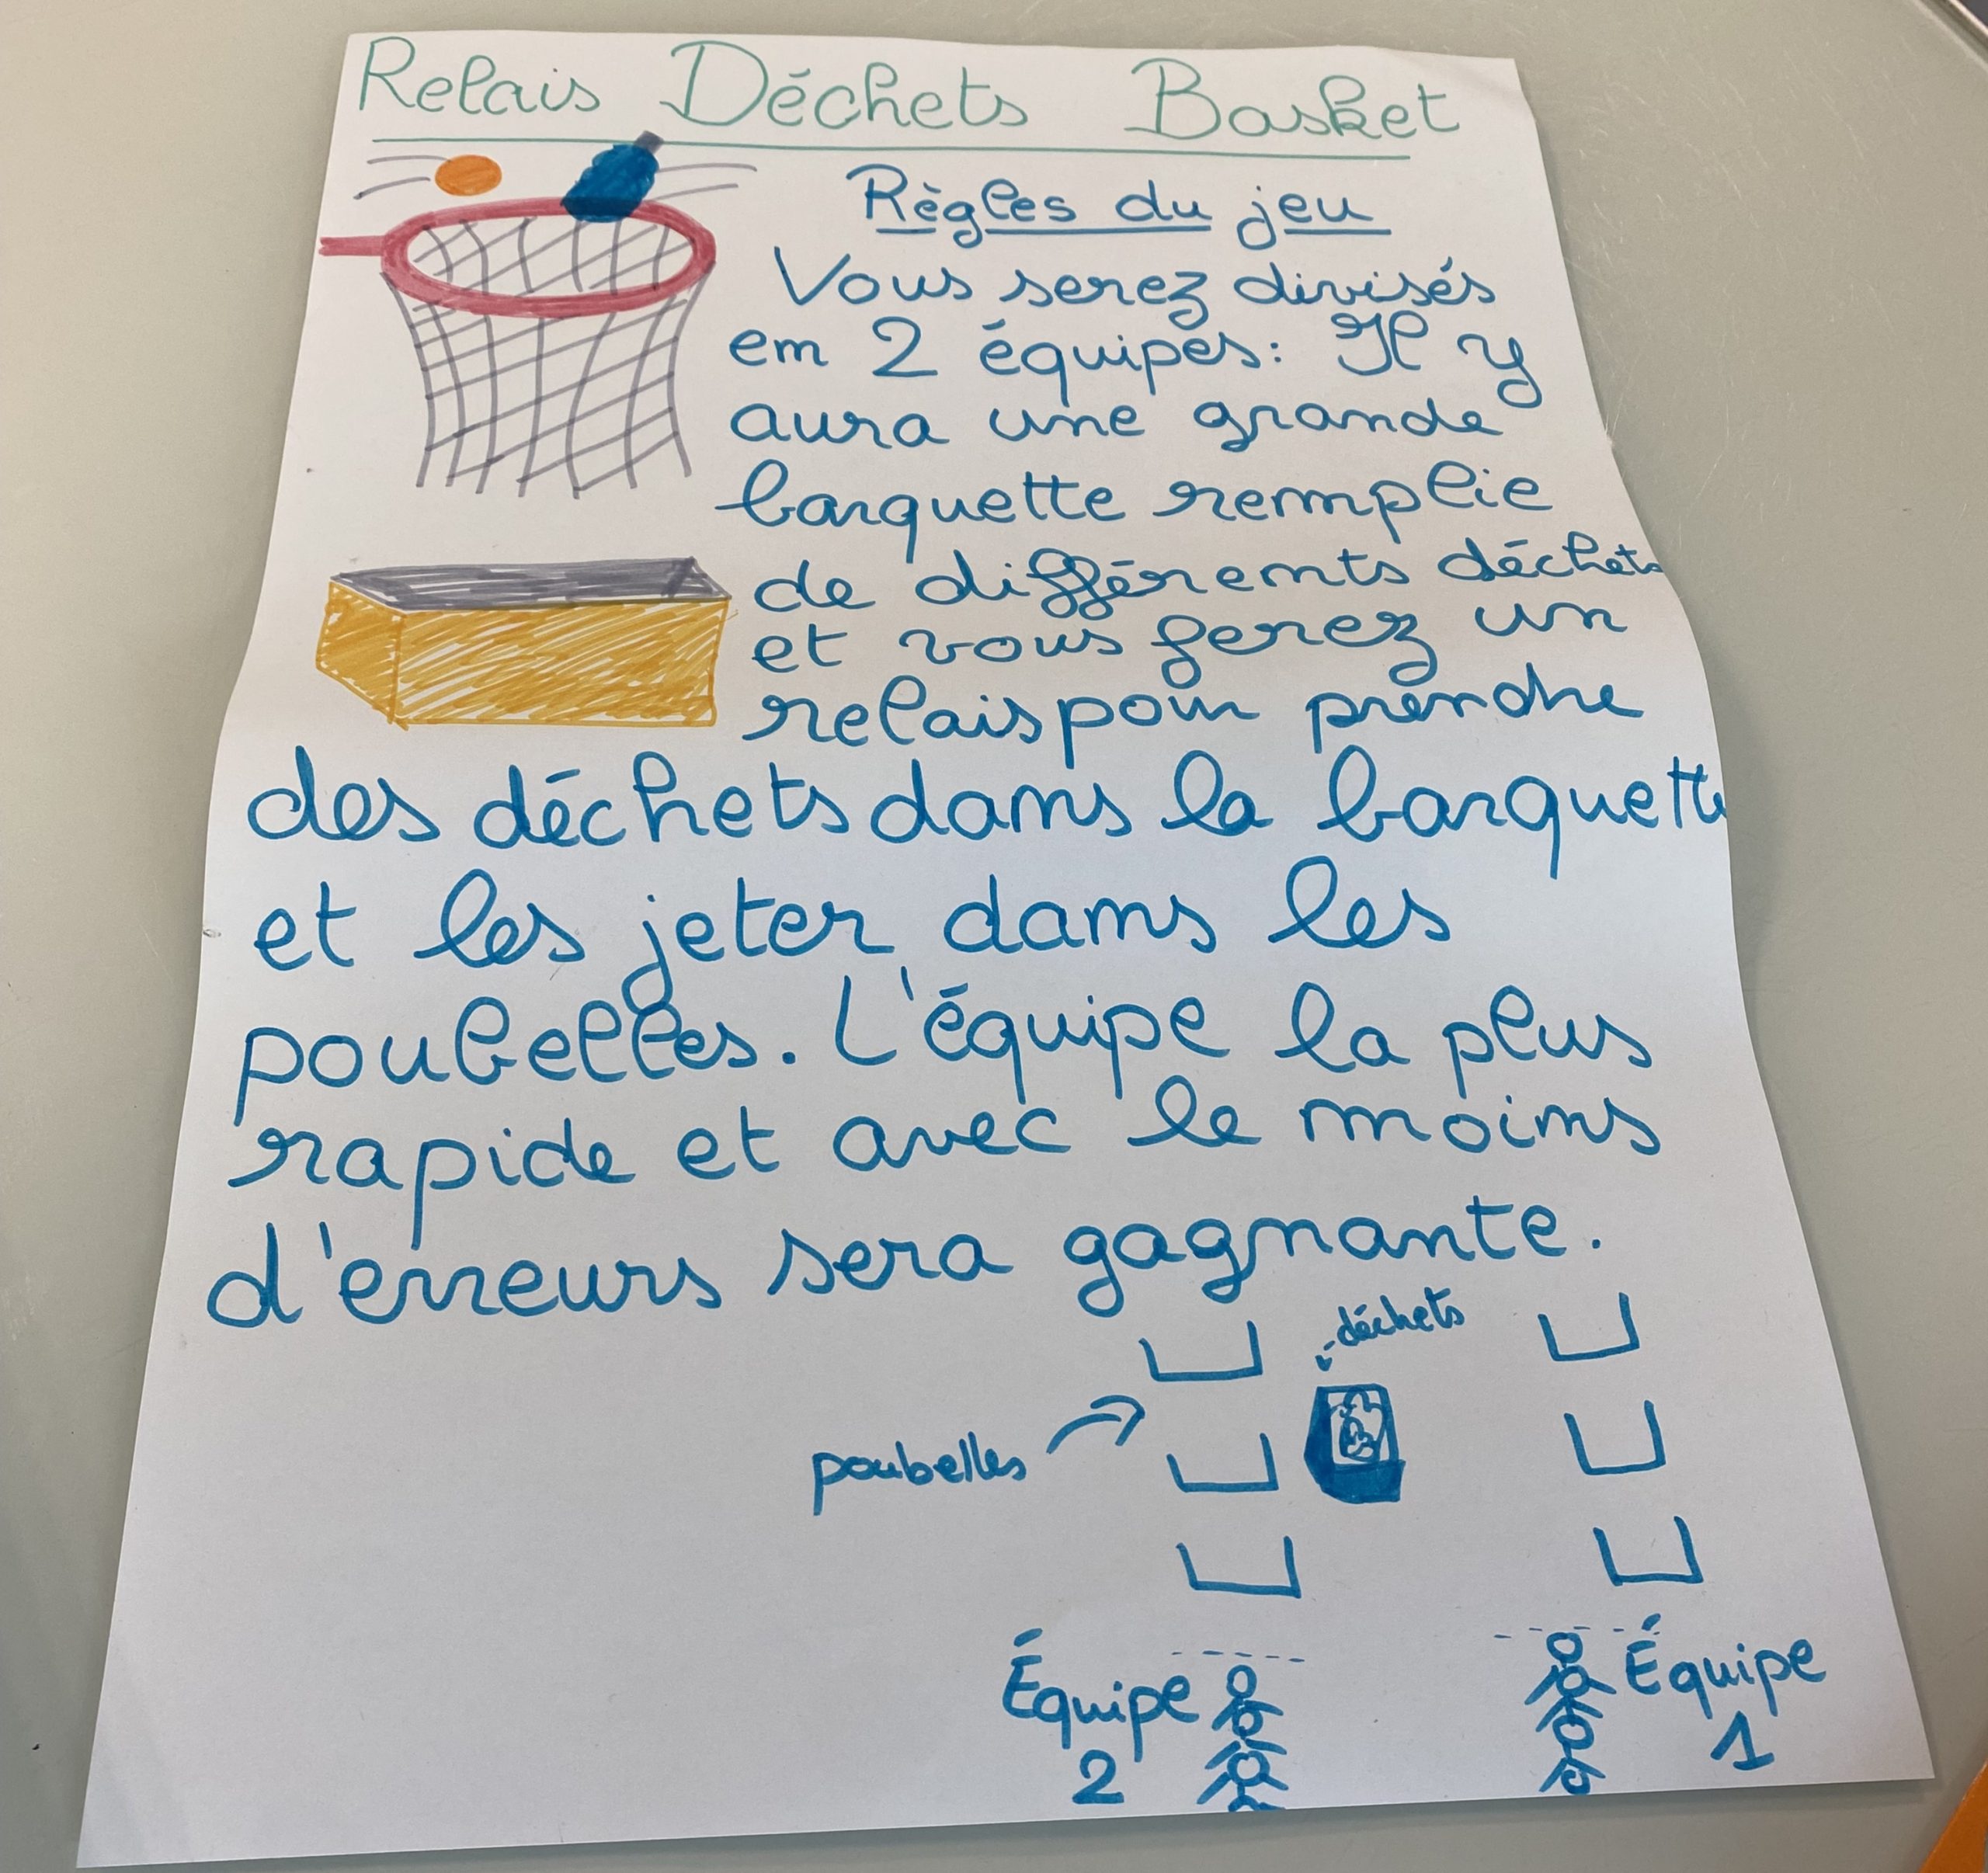 Relais Déchets Basket
Règles du jeu
Vous serez divisés
en 2 équipes: Il y
aura une grande
barquette remplie
de différents déchets
et vous ferez un
relais pour prendre
des déchets dans la barquette
et les jeter dans les
poubelles. L'équipe la plus
rapide et avec le moins
d'erreurs sera gagnante.
déchets
poubelles
Équipe
2
Équipe
1